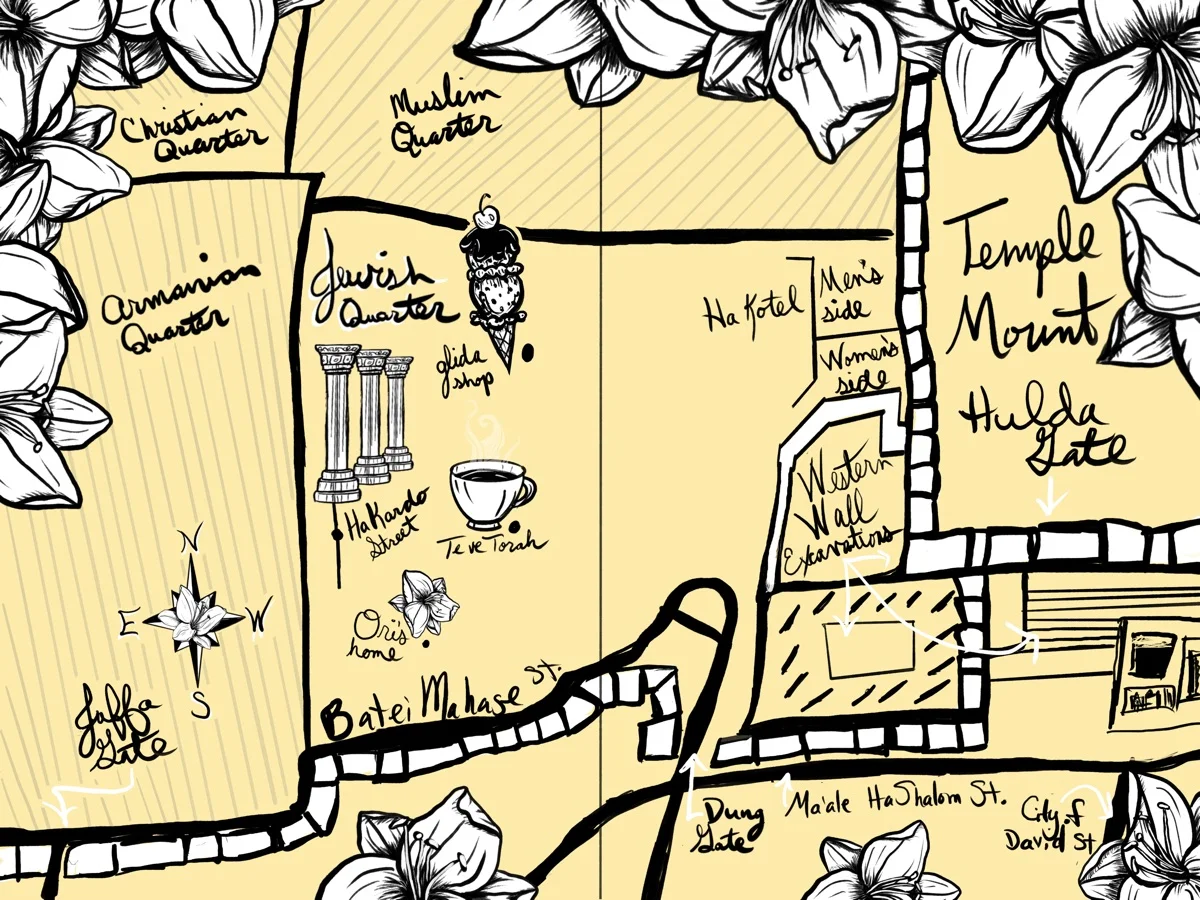 Christian
Quarter
Muslim
Quarter
Armanian
Quarter
Jewish
Quarter
glida
shop
HaKardo
Street
Te ve Torah
Ori's
home
Batei Mahase St.
Ha Kotel
Men's
side
Women's
side
Western
Wall
Excavations
Temple
Mount
Hulda
Gate
N
E W
S
Jaffa
Gate
Dung
Gate
Ma'ale HaShalom St.
City of
David St